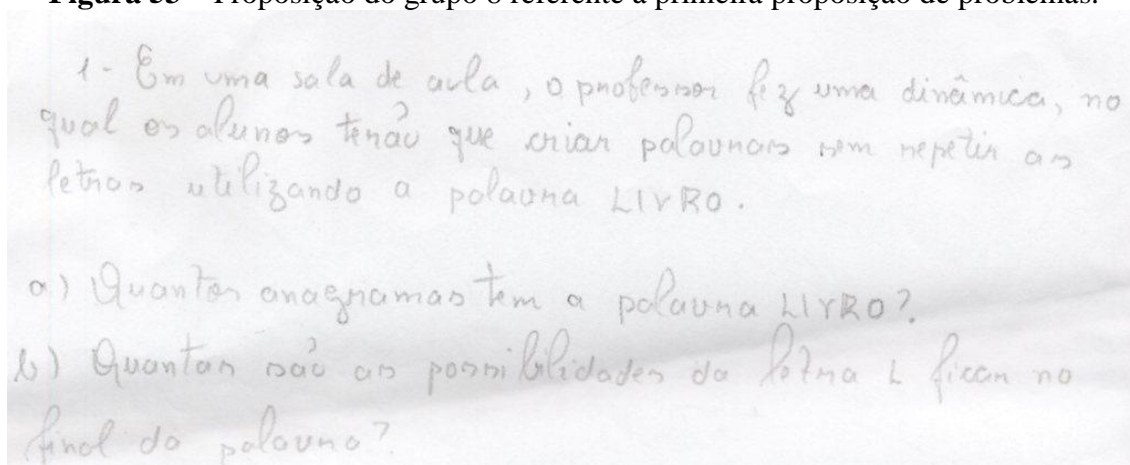 Figura 33 – Proposição do grupo 6 referente à primeira proposição de problemas.
1- Em uma sala de aula, o professor fez uma dinâmica, no
qual os alunos terão que criar palavras sem repetir as
letras utilizando a palavra LIVRO.
a) Quantos anagramas tem a palavra LIVRO?
b) Quantas são as possibilidades da letra L ficar no
final da palavra?